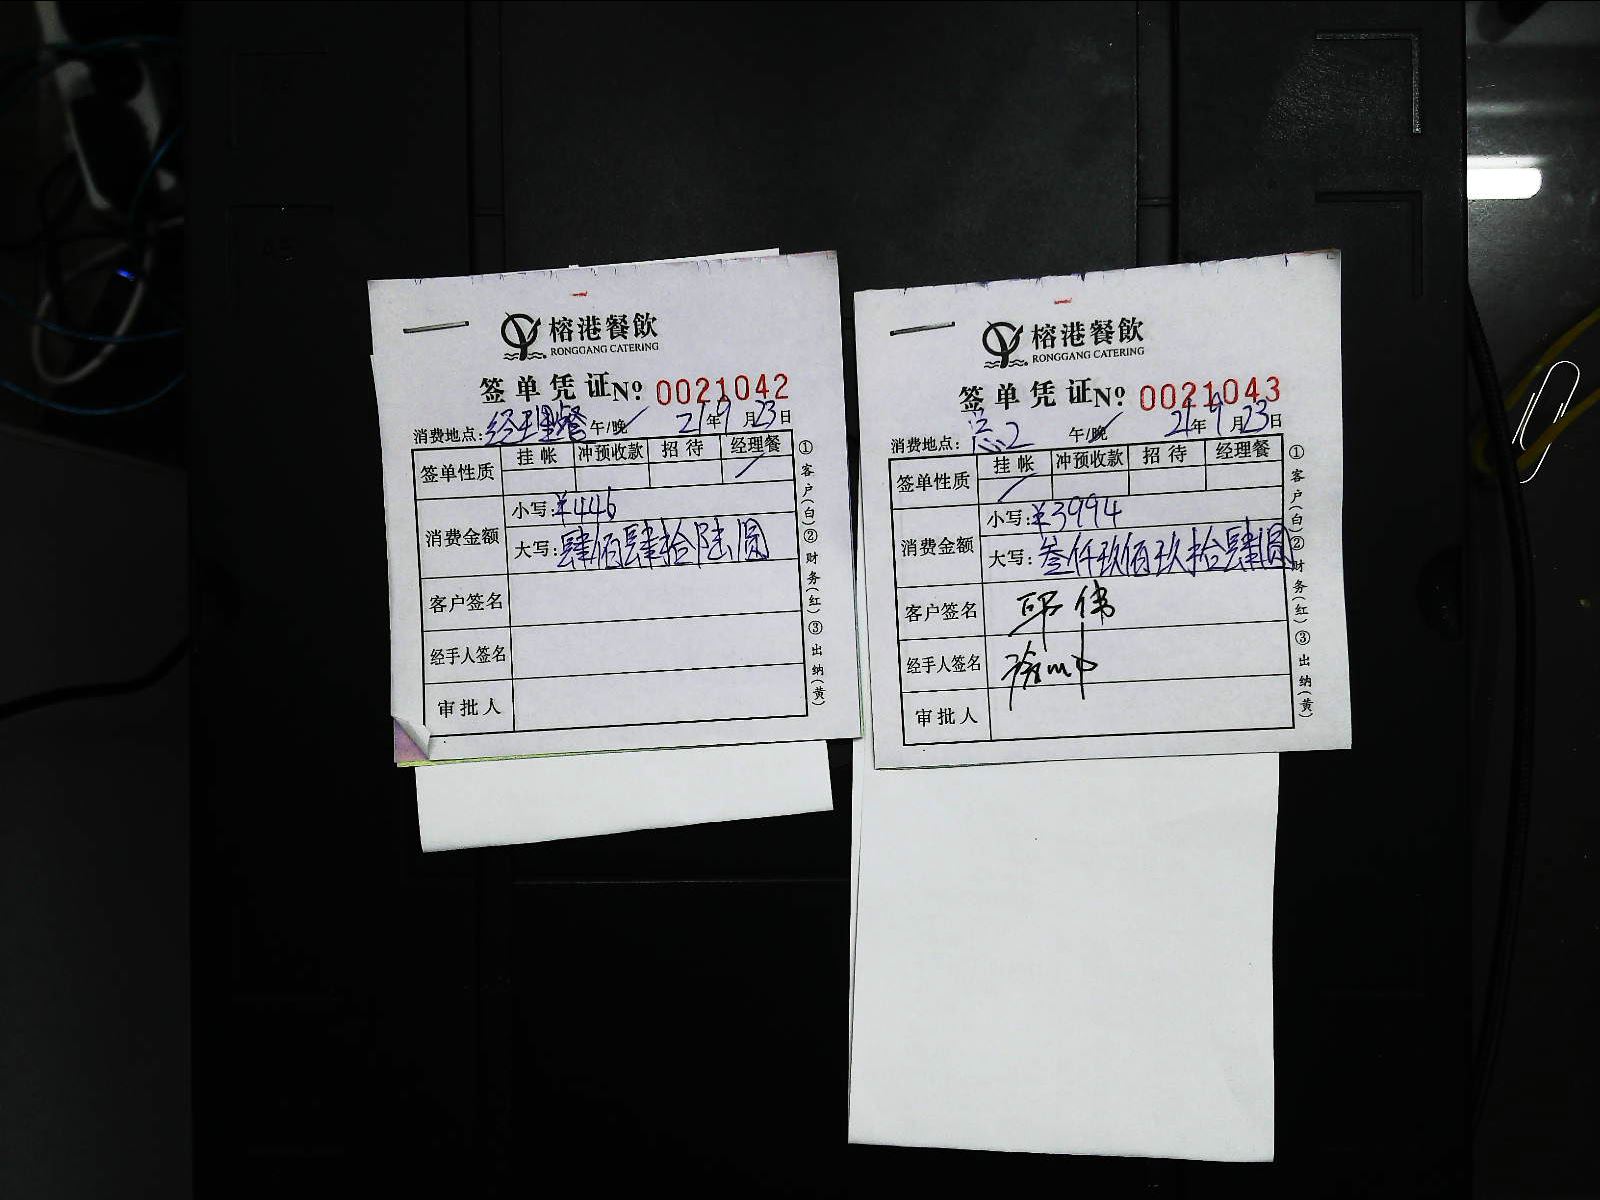 榕港餐飲
RONGGANG CATERING
签单凭证 No. 0021042
消费地点: 经理餐 午/晚 21年9月23日
签单性质 挂帐 冲预收款 招待 经理餐
消费金额 小写: ¥446
大写: 肆佰肆拾陆圆
客户签名
经手人签名
审批人
①客户(白)②财务(红)③出纳(黄)
榕港餐飲
RONGGANG CATERING
签单凭证 No. 0021043
消费地点: 总2 午/晚 21年9月23日
签单性质 挂帐 冲预收款 招待 经理餐
消费金额 小写: ¥3994
大写: 叁仟玖佰玖拾肆圆
客户签名 邱伟
经手人签名
审批人
①客户(白)②财务(红)③出纳(黄)